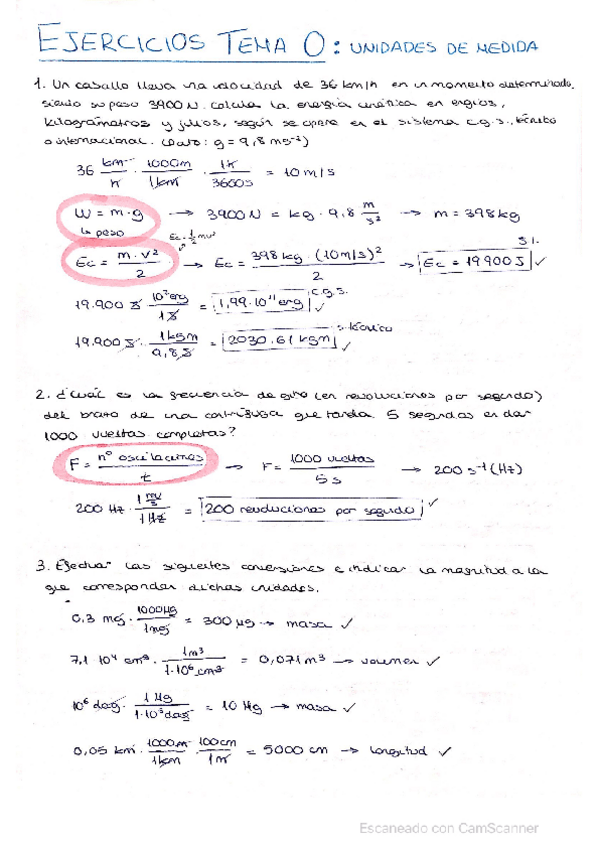 EJERCICIOS TEMA 0: UNIDADES DE MEDIDA
1. Un caballo lleva una velocidad de 36 km/h en un momento determinado,
siendo su peso 3900 N. Calcula la energía cinética en ergios,
kilográmetros y julios, según se opere en el sistema c.g.s., técnico
o internacional. (Dato: g = 9,8 ms⁻²)
36 km/h · 1000m/1km · 1h/3600s = 10 m/s
W = m·g → 3900N = kg · 9,8 m/s² → m = 398kg
↳ peso
Ec = ½ mv²
Ec = m·v²/2 → Ec = 398 kg · (10m/s)²/2 → Ec = 19900 J ✓ S.I.
19.900 J · 10⁷ erg/1J = 1,99·10¹¹ erg ✓ c.g.s.
19.900 J · 1kgm/9,8J = 2030.61 kgm ✓ técnico
2. ¿Cuál es la frecuencia de giro (en revoluciones por segundo)
del brazo de una centrífuga que tarda 5 segundos en dar
1000 vueltas completas?
F = nº oscilaciones/t → F = 1000 vueltas/5 s → 200 s⁻¹ (Hz)
200 Hz · 1 rev/s/1Hz = 200 revoluciones por segundo ✓
3. Efectuar las siguientes conversiones e indicar la magnitud a la
que corresponden dichas unidades.
0,3 mg · 1000µg/1mg = 300 µg → masa ✓
7,1·10⁴ cm³ · 1m³/1·10⁶ cm³ = 0,071m³ → volumen ✓
10⁶ dag · 1 Mg/1·10⁵ dag = 10 Mg → masa ✓
0,05 km · 1000m/1km · 100cm/1m = 5000 cm → longitud ✓
Escaneado con CamScanner